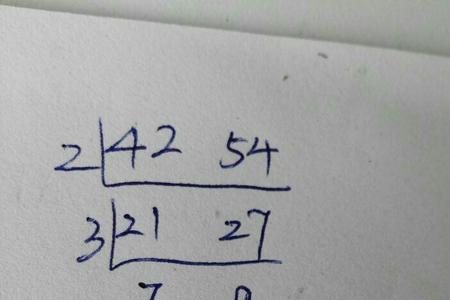 2 42 54
3 21 27
7